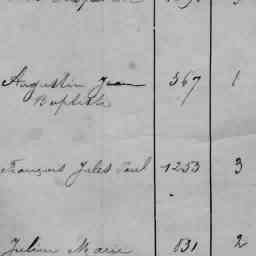 Augustin Jean 367 1
Baptiste
François Jules Paul 1253 3
Julien Marie 831 2